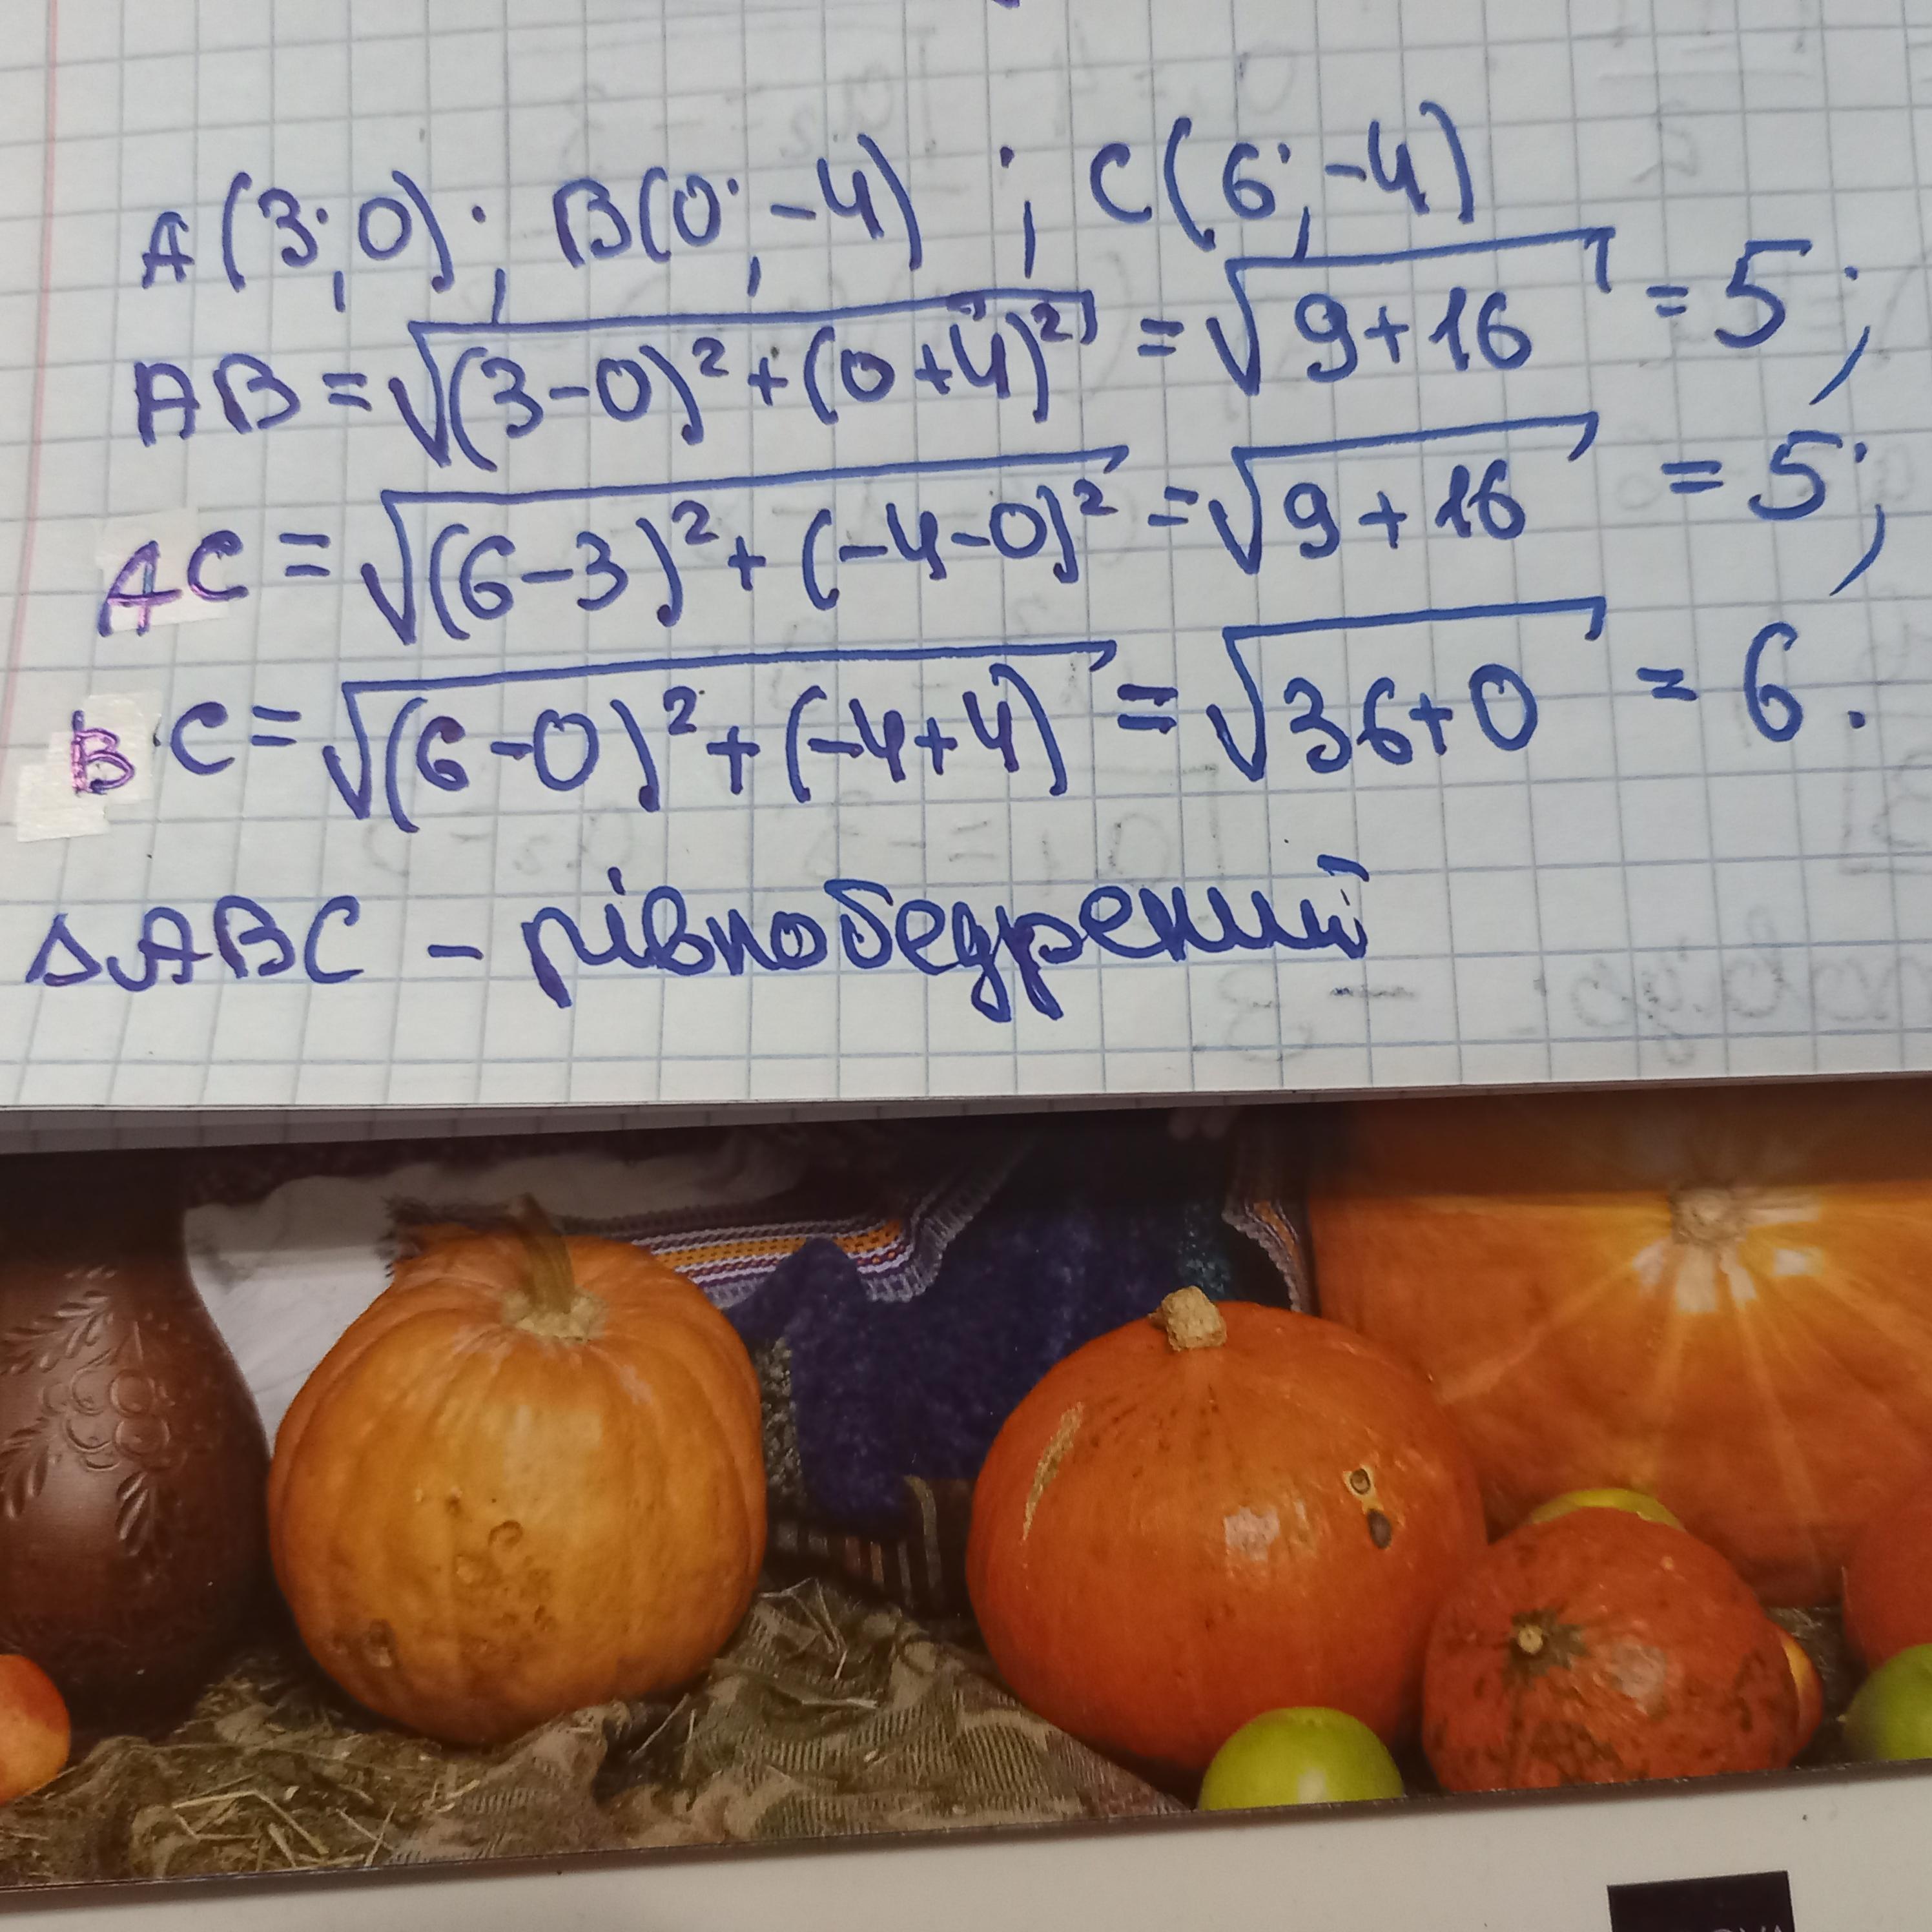 A(3;0); B(0;-4) ; C(6;-4)
AB=√(3-0)²+(0+4)² = √9+16 = 5;
AC = √(6-3)²+(-4-0)² = √9+16 = 5;
BC = √(6-0)²+(-4+4) = √36+0 = 6.
ΔABC - рівнобедрений